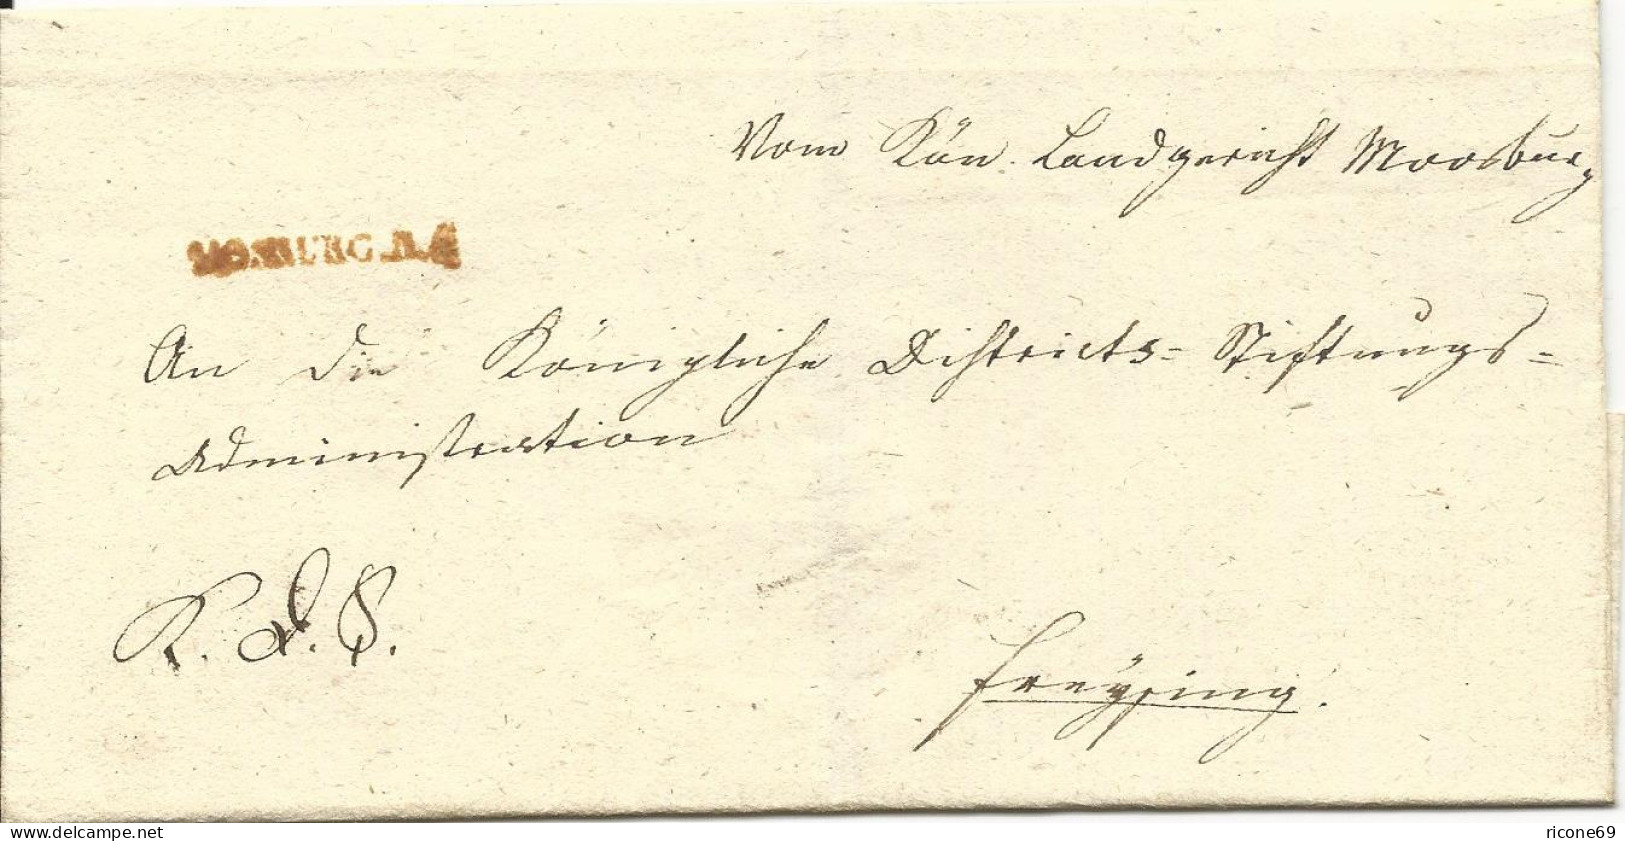 Vom Kön. Landgericht Moosburg
An die Königliche Districts-Stiftungs-
Administration
R. d. S.
Freÿsing.
www.delcampe.net
ricone69